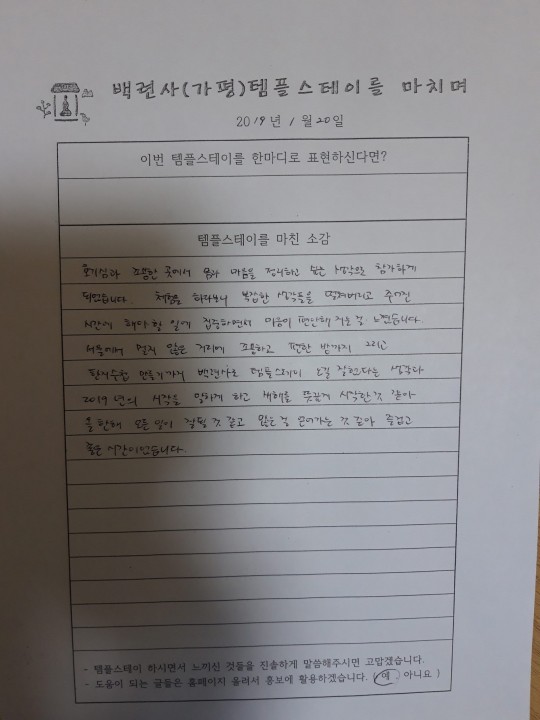 백련사(가평)템플스테이를 마치며
2019년 1월 20일
이번 템플스테이를 한마디로 표현하신다면?
템플스테이를 마친 소감
호기심과 조용한 곳에서 몸과 마음을 정리하고 싶은 생각으로 참가하게
되었습니다. 체험을 하다보니 복잡한 생각들을 떨쳐버리고 주어진
시간에 해야 할 일에 집중하면서 마음이 편안해 지는 걸 느꼈습니다.
서울에서 멀지 않은 거리에 조용하고 편한 방까지 그리고
만들기까지 백련사로 템플스테이 오길 잘했다는 생각과
2019년의 시작을 알차게 하고 새해를 뜻깊게 시작한 것 같아
올 한해 모든 일이 잘될 것 같고 얻는 걸 얻어가는 것 같아 즐겁고
좋은 시간이었습니다.
- 템플스테이 하시면서 느끼신 것들을 진솔하게 말씀해주시면 고맙겠습니다.
- 도움이 되는 글들은 홈페이지 올려서 홍보에 활용하겠습니다. (예 아니요)